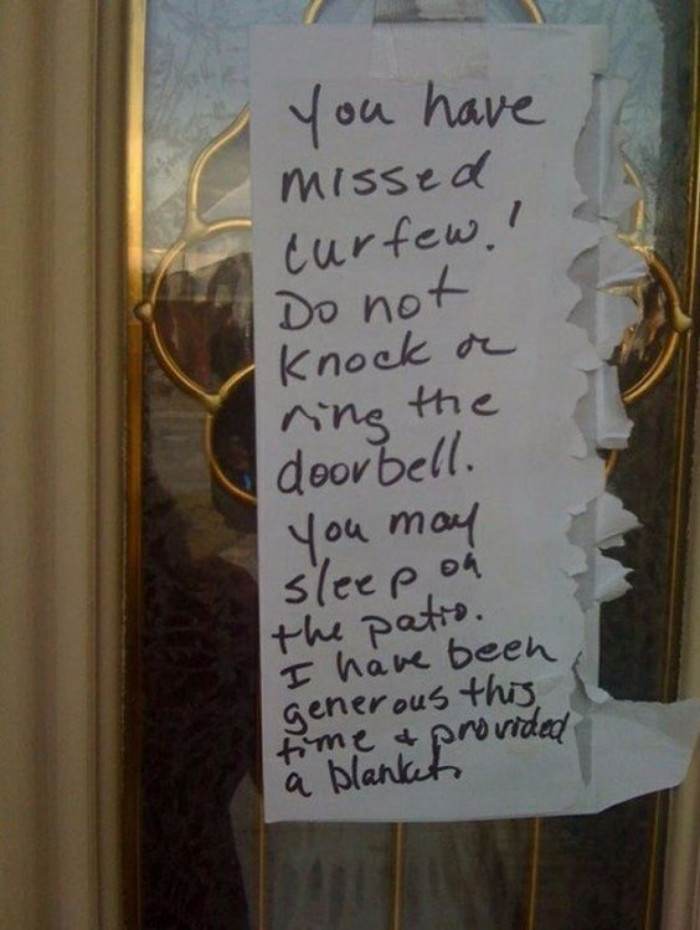 You have
missed
curfew.!
Do not
knock or
ring the
doorbell.
You may
sleep on
the patio.
I have been
generous this
time + provided
a blanket.